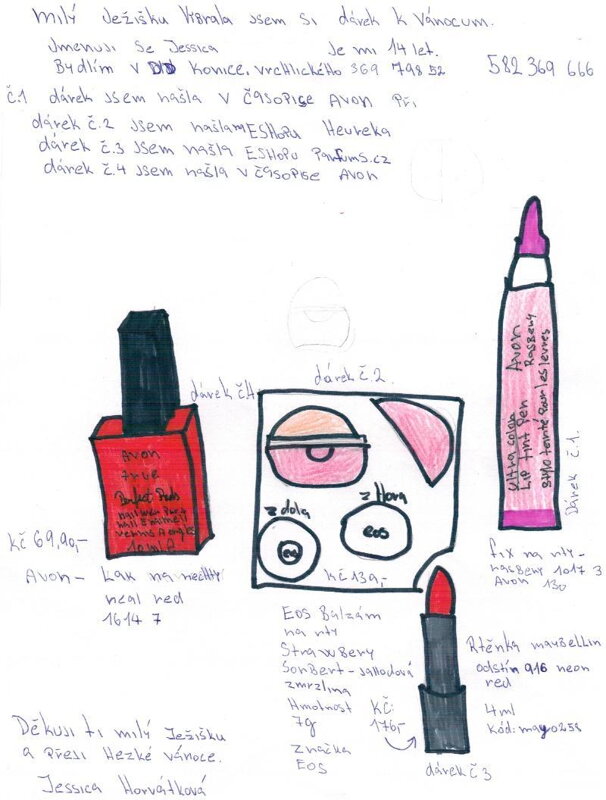 Milý Ježišku Vibrala jsem si dárek k vánocum.
Jmenusi se Jessica Je mi 14 let.
Bydlím v Konice. vrchlického 369 798 52 582 369 666
č.1 dárek jsem našla v časopise Avon Při
dárek č.2 jsem našlam ESHOPU Heureka
dárek č.3 jsem našla ESHOPU Parfums.cz
dárek č.4 jsem našla v časopise Avon
dárek č4
Avon
true
Perfect Reds
10 ml
Kč 69,90,-
Avon - Lak na nechty
neal red
1614 7
dárek č.2.
z dola
z hora
eos
eos
Kč 139,-
EOS Balzám
na rty
Strawbery
Sorbert - Jahodová
zmrzlina
Hmotnost
7g
Značka
EOS
Ultra color Avon
Lip tint Pen Rasbery
Stylo teinté Pour les levres
Dárek č.1.
fix na rty -
rasbery 1017 3
Avon 130
Kč:
176,-
Rtěnka maybellin
odstín 916 neon
red
4ml
Kód: may0258
dárek č3
Děkusi ti milý Ježišku
a přesi Hezké vánoce.
Jessica Horvátková